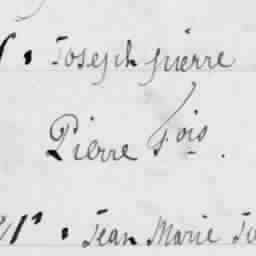 Joseph pierre
Pierre Fois.
Jean Marie